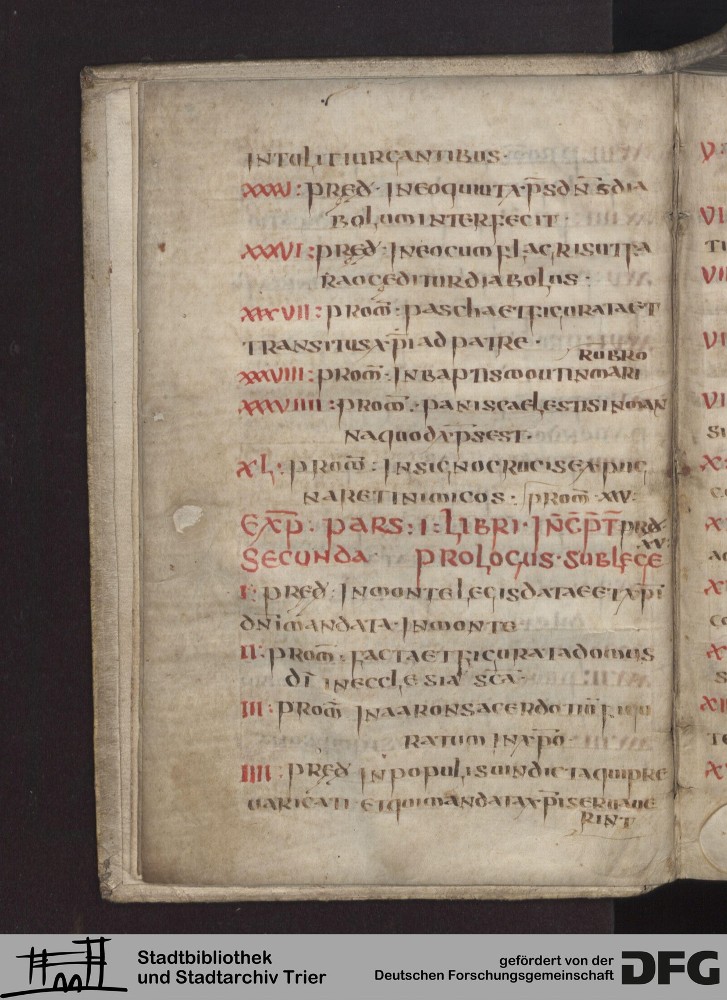 INTULIT IURGANTIBUS·
XXXV: PRED̅· IN EO QUI UITA· P̅S D̅N̅S̅ DIA
BOLUM INTERFECIT·
XXXVI: PRED̅· IN EO CUM FLAGRIS UT FA
RAO CEDITUR DIABOLUS·
XXXVII: PROM̅· PASCHA ET FIGURATA ET
TRANSITUS A· X̅P̅I AD PATRE·
RUBRO
XXXVIII: PROM̅· IN BAPTISMO UT IN MARI
XXXVIIII: PROM̅· PANIS CAELESTIS IN MAN
NA QUOD X̅P̅S EST·
XL· PROM̅: IN SIGNO CRUCIS EXPUG
NARET INIMICOS· PROM̅· XXV·
EXP̅· PARS· I· LIBRI· IN̅C̅P̅T̅ PRD̅·
XV·
SECUNDA PROLOGUS· SUB LEGE
I· PRED̅· IN MONTE LEGIS DATAE ET X̅P̅I
DN̅I MANDATA· IN MONTE
II· PROM̅· FACTA ET FIGURATA DOMUS
DI̅ IN ECCLESIA SC̅A·
III· PROM̅ IN AARON SACERDOTIUM FIGU
RATUM IN X̅P̅O·
IIII· PRED̅ IN POPULIS UINDICTA QUI PRE
UARICATI ET QUI MANDATA X̅P̅I SERUAUE
RINT
V
VI
VII
VI
VI
Stadtbibliothek
und Stadtarchiv Trier
gefördert von der
Deutschen Forschungsgemeinschaft
DFG